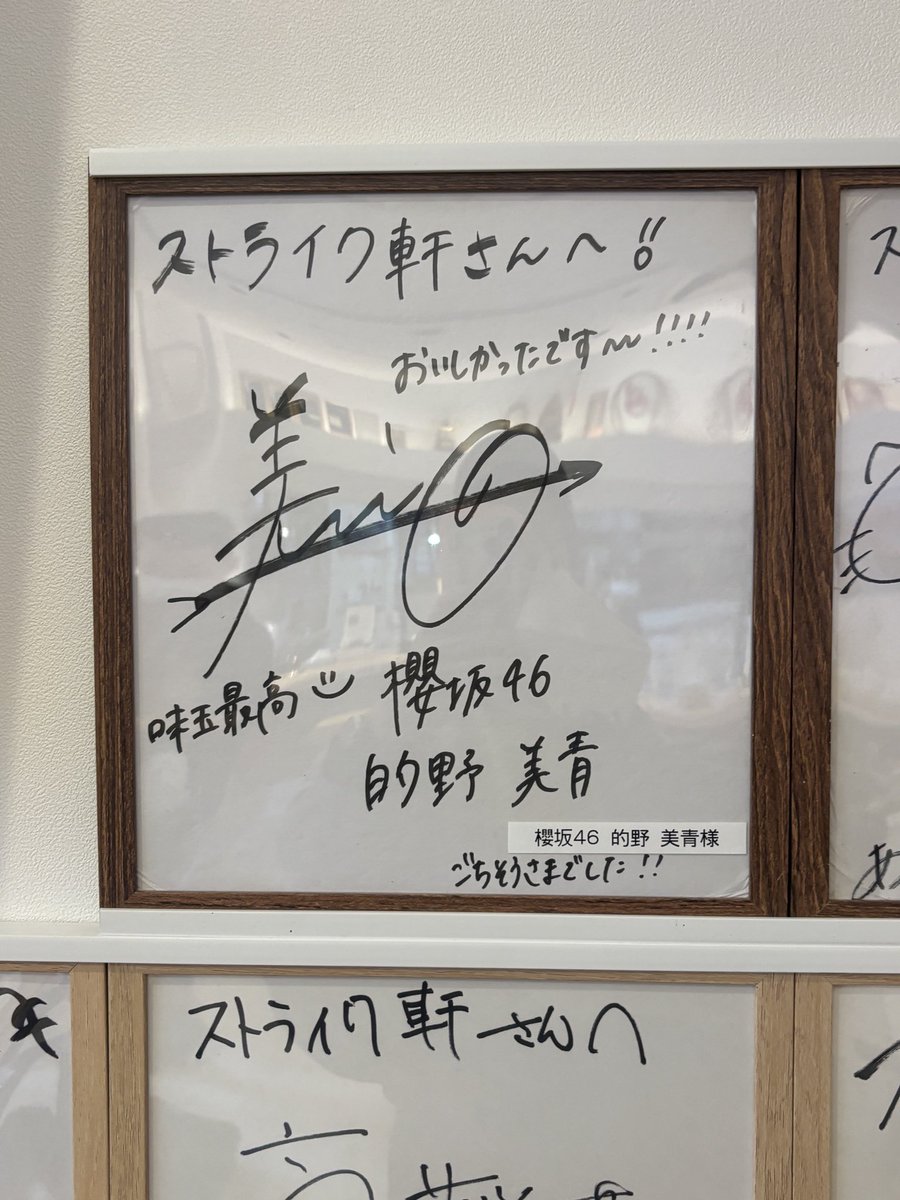 ストライク軒さんへ!!
おいしかったです〜!!!!
味玉最高
櫻坂46
的野 美青
櫻坂46 的野 美青様
ごちそうさまでした!!
ストライク軒さんへ